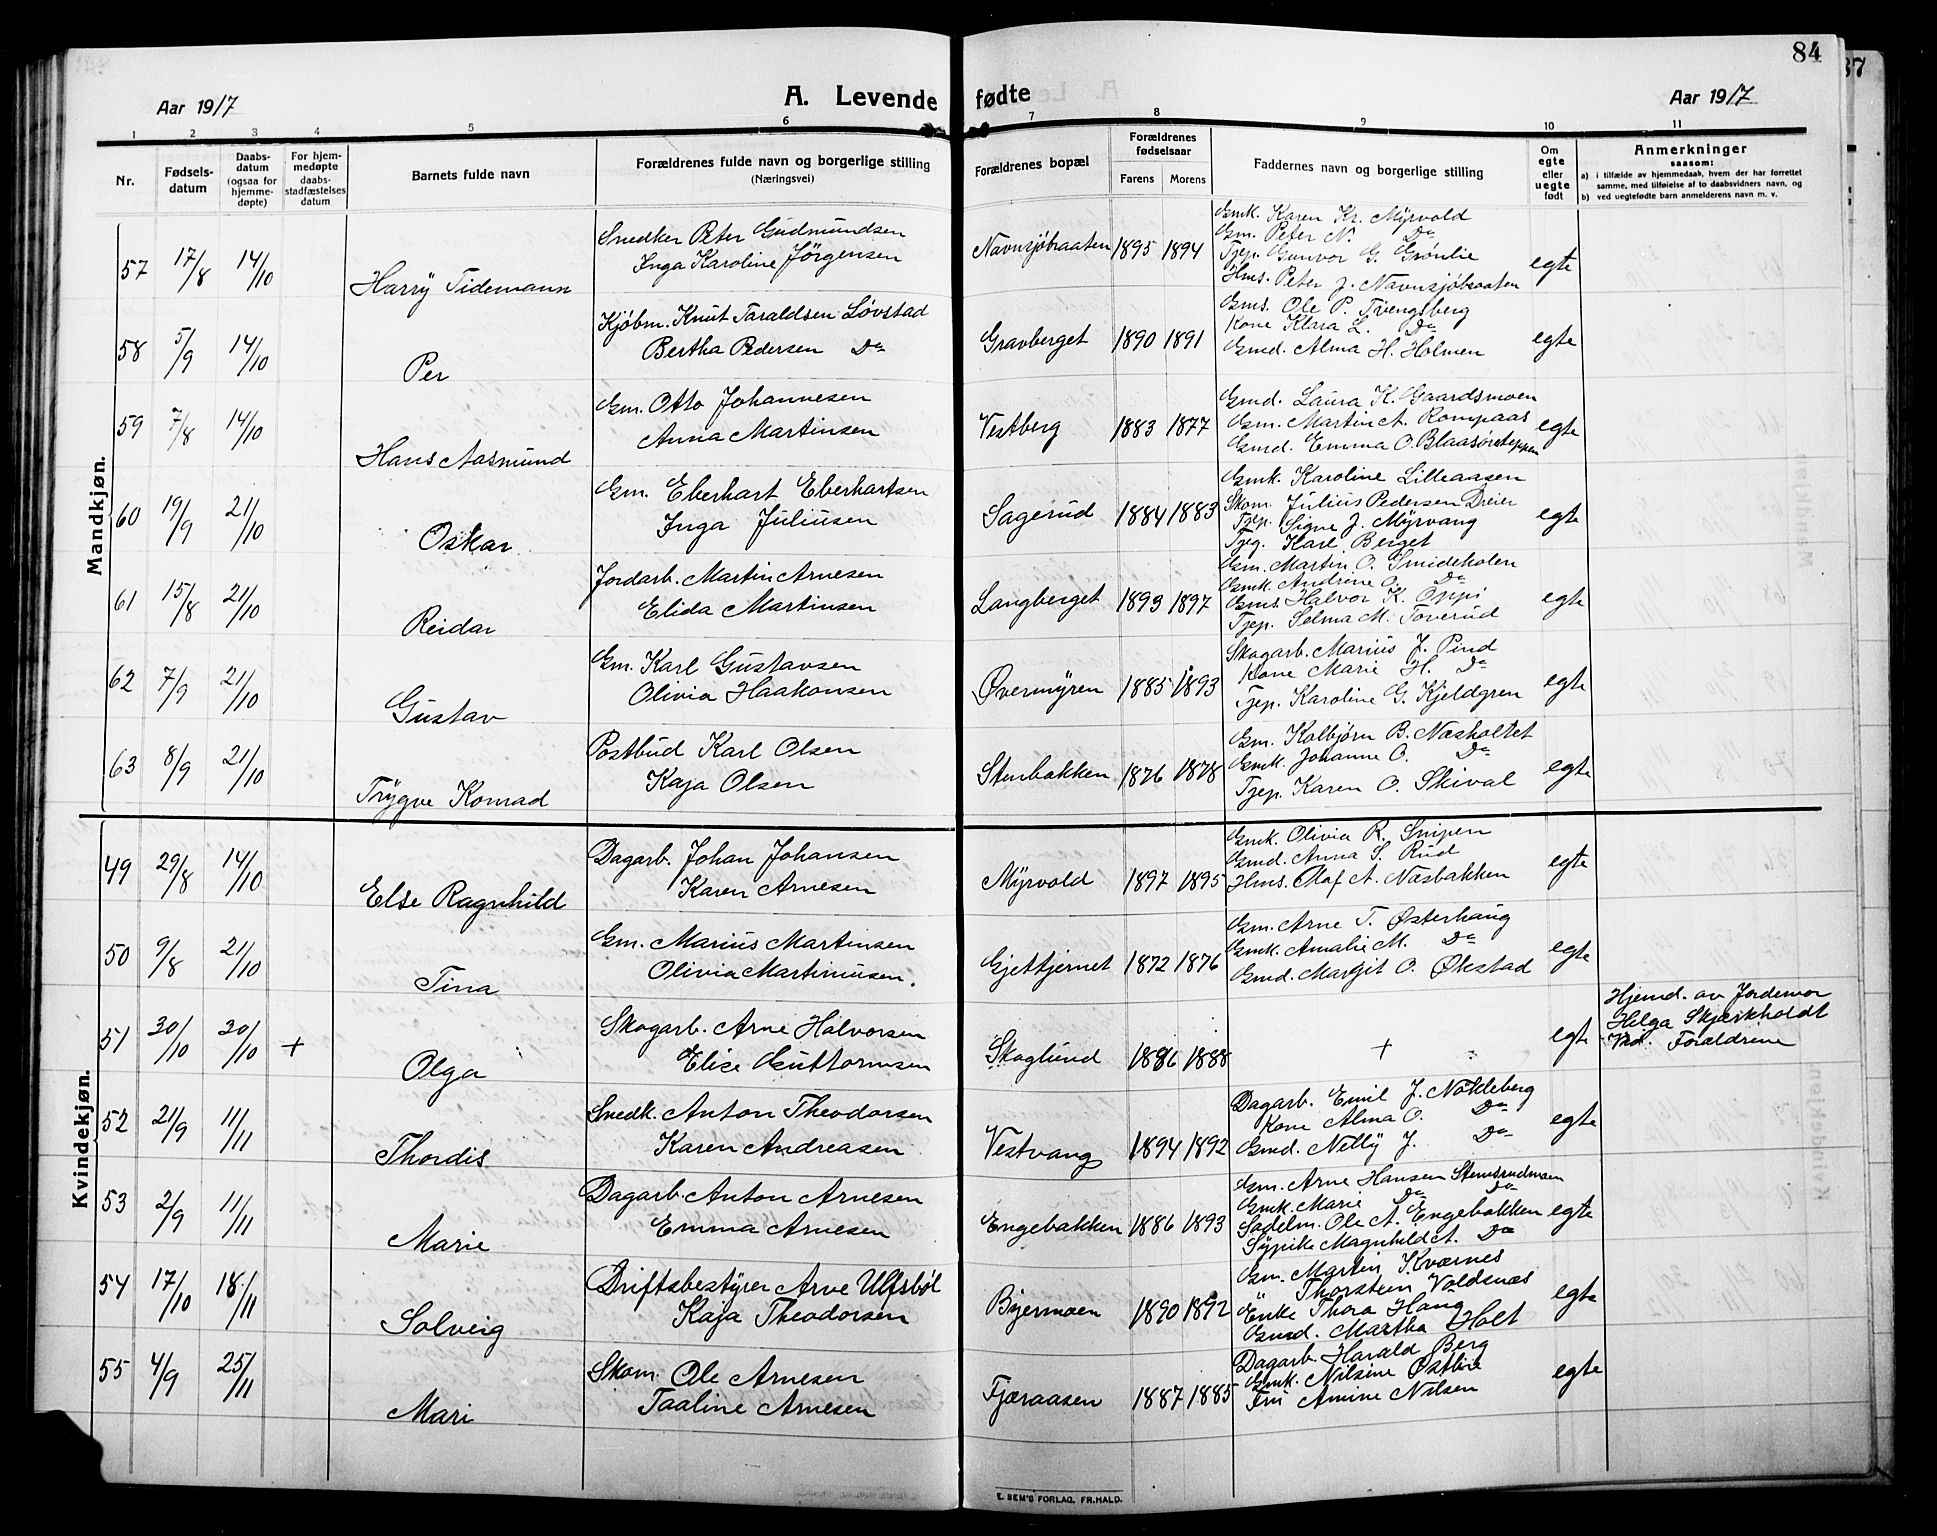 84
37
Aar 1917
A. Levende fødte
Aar 1917
1 2 3 4 5 6 7 8 9 10 11
Nr.
Fødsels-
datum
Daabs-
datum
(ogsaa for
hjemme-
døpte)
For hjem-
medøpte
daabs-
stadfæstelses
datum
Barnets fulde navn
Forældrenes fulde navn og borgerlige stilling
(Næringsvei)
Forældrenes bopæl
Forældrenes
fødselsaar
Farens Morens
Faddernes navn og borgerlige stilling
Om
egte
eller
uegte
født
Anmerkninger
saasom:
a) i tilfælde av hjemmedaab, hvem der har forrettet
samme, med tilføielse af to daabsvidners navn, og
b) ved uegtefødte barn anmelderens navn m. v.
Mandkjøn.
57 17/8 14/10 Harry Tidemann
Snedker Peter Gudmundsen
Inga Karoline Jörgensen
Navnsjöbraaten 1895 1894
Gmk. Karen Kr. Myrvold
Gm. Peter N. Do
Tjep. Gunvor G. Grønlie
Hms. Peter J. Navnsjöbraaten
egte
58 5/9 14/10 Per
Kjøbm. Knut Taraldsen Løvstad
Bertha Pedersen Do
Gravberget 1890 1891
Gms. Ole P. Tvengsberg
Kone Klara L. Do
Gmd. Alma H. Holmen
egte
59 7/8 14/10 Hans Aasmund
Gm. Otto Johannesen
Anna Martinsen
Vestberg 1883 1877
Gmd. Laura K. Gaardsmoen
Gm. Martin A. Rompaas
Gmd. Emma O. Blaasørsteppen
egte
60 19/9 21/10 Oskar
Gm. Eberhart Eberhartsen
Inga Juliusen
Sagerud 1884 1883
Gmk. Karoline Lilleaasen
Skom. Julius Pedersen Dreier
Tjep. Signe J. Myrvang
Tjeg. Karl Berget
egte
61 15/8 21/10 Reidar
Jordarb. Martin Arnesen
Elida Martinsen
Langberget 1893 1897
Gm. Martin O. Smideholen
Gmk. Andrine O. Do
Gms. Halvor K. Oppi
Tjep. Selma M. Toverud
egte
62 7/9 21/10 Gustav
Gm. Karl Gustavsen
Olivia Haakonsen
Øvermyren 1885 1893
Skogarb. Marius J. Pind
Kone Marie H. Do
Tjep. Karoline G. Kjeldgren
egte
63 8/9 21/10 Trygve Konrad
Postbud Karl Olsen
Kaja Olsen
Stenbakken 1876 1878
Gm. Kolbjørn B. Næsholtet
Gmk. Johanne O. Do
Tjep. Karen O. Skival
egte
Kvindekjøn.
49 29/8 14/10 Else Ragnhild
Dagarb. Johan Johansen
Karen Arnesen
Myrvold 1897 1895
Gmk. Olivia R. Snipen
Gmd. Anna S. Rud
Hms. Olaf A. Næsbakken
egte
50 9/8 21/10 Tina
Gm. Marius Martinsen
Olivia Martinusen.
Gjettjernet 1872 1876
Gm. Arne T. Østerhaug
Gmk. Amalie M. Do
Gmd. Margit O. Økstad
egte
51 30/10 30/10 + Olga
Skogarb. Arne Halvorsen
Elise Guttormsen
Skoglund 1886 1888
+
egte
Hjemd. av Jordemor
Helga Skjærholdt
Vid. Forældrene
52 21/9 11/11 Thordis
Snedk. Anton Theodorsen
Karen Andreasen
Vestvang 1894 1892
Dagarb. Emil J. Nokleberg
Kone Alma O. Do
Gmd. Nelly J. Do
egte
53 2/9 11/11 Marie
Dagarb. Anton Arnesen
Emma Arnesen
Engebakken 1886 1893
Gm. Arne Hansen Stensrudmoen
Gmk. Marie Do Do
Sadelm. Ole A. Engebakken
Sypike Magnhild A. Do
egte
54 17/10 18/11 Solveig
Driftsbestyrer Arve Ulfsbøl
Kaja Theodorsen
Bjermoen 1890 1892
Gm. Martin Kværnes
" Thorstein Voldsnæs
Enke Thora Haug
Gmd. Martha Holt
egte
55 4/9 25/11 Mari
Skom. Ole Arnesen
Taaline Arnesen
Fjæraasen 1887 1885
Dagarb. Harald Berg
Gmk. Nilsine Østlie
Fru Amine Nilsen
egte
E. SEM'S FORLAG, FR.HALD.